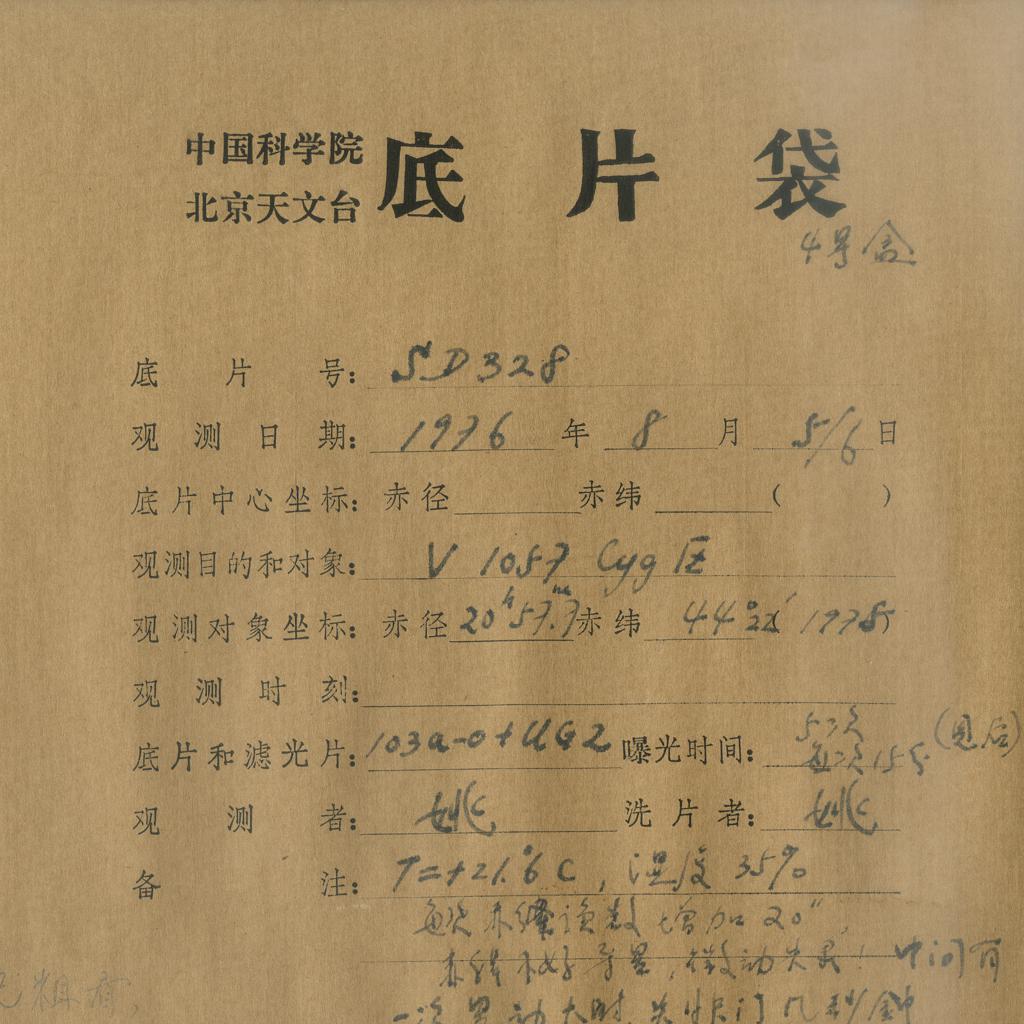 中国科学院
北京天文台
底片袋
4号盒
底片号： SD328
观测日期： 1976 年 8 月 5/6 日
底片中心坐标： 赤径 赤纬 ( )
观测目的和对象： V 1057 Cyg 区
观测对象坐标： 赤径 20h57.m7 赤纬 44° 1978
观测时刻：
底片和滤光片： 103a-O+UG2 曝光时间： 5次 每次15s (见后)
观测者： 姚 洗片者： 姚
备注： T=+21.°6C, 湿度 35%
每次赤纬读数增加20",
赤纬不好导星,微动失灵! 中间有
一次 动大时, 关快门几秒钟